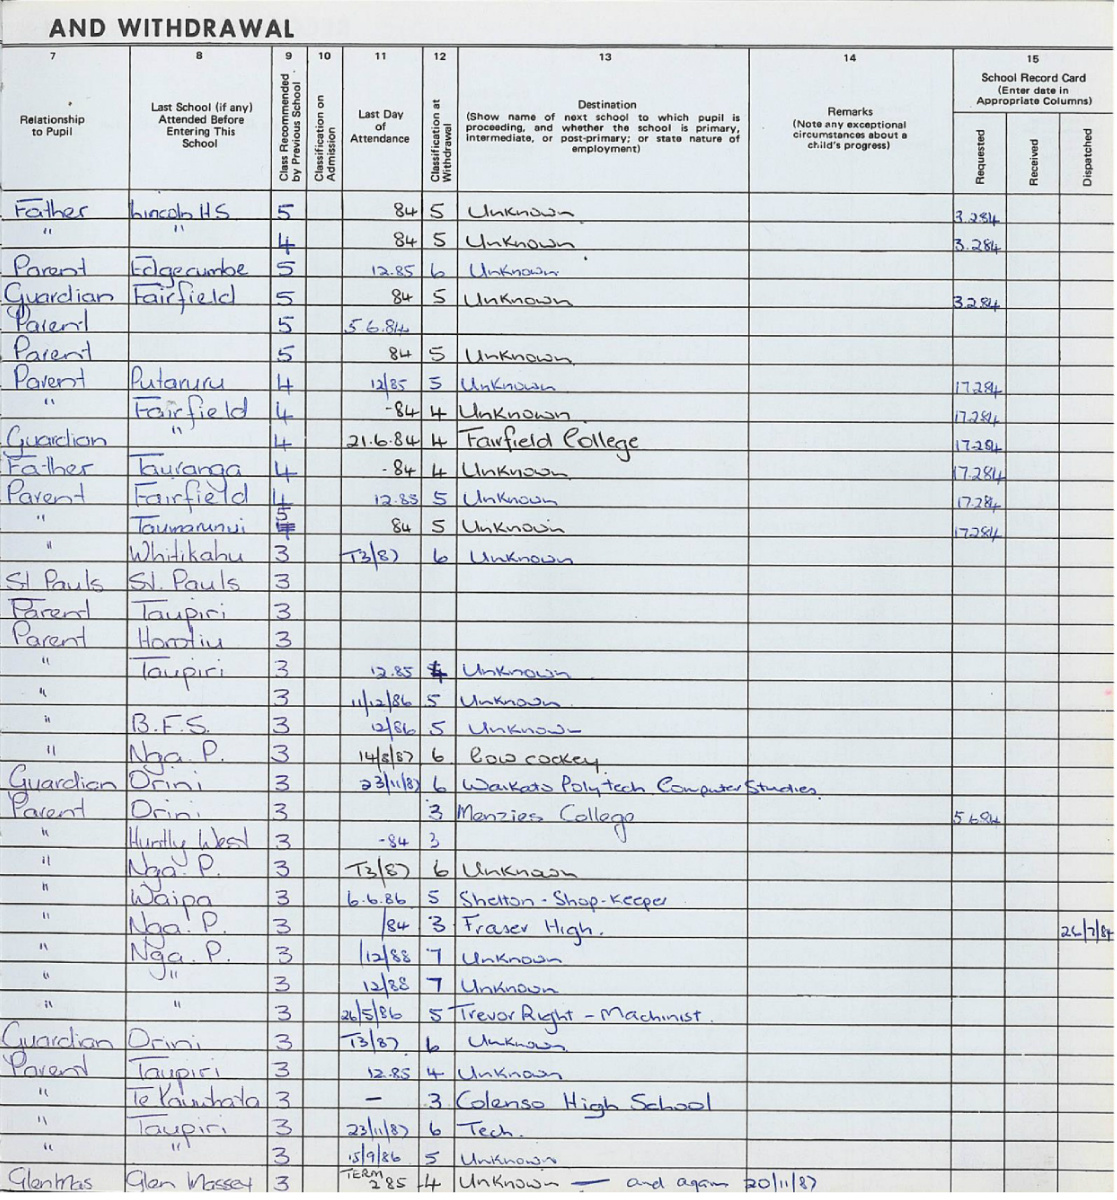 AND WITHDRAWAL
7 8 9 10 11 12 13 14 15
Relationship to Pupil
Last School (if any) Attended Before Entering This School
Class Recommended by Previous School
Classification on Admission
Last Day of Attendance
Classification at Withdrawal
Destination
(Show name of next school to which pupil is proceeding, and whether the school is primary, intermediate, or post-primary; or state nature of employment)
Remarks
(Note any exceptional circumstances about a child's progress)
School Record Card
(Enter date in Appropriate Columns)
Requested
Received
Dispatched
Father Lincoln HS 5 84 5 Unknown 3.284
" " 4 84 5 Unknown 3.284
Parent Edgecumbe 5 12.85 6 Unknown
Guardian Fairfield 5 84 5 Unknown 3.284
Parent 5 5 6.84
Parent 5 84 5 Unknown
Parent Putaruru 4 12/85 5 Unknown 17.284
" Fairfield 4 -84 4 Unknown 17.284
Guardian " 4 21.6.84 4 Fairfield College 17.284
Father Tauranga 4 -84 4 Unknown 17.284
Parent Fairfield 4 12.85 5 Unknown 17.284
" Taumarunui 5 84 5 Unknown 17284
" Whitikahu 3 T3/87 6 Unknown
St Pauls St. Pauls 3
Parent Taupiri 3
Parent Horotiu 3
" Taupiri 3 12.85 4 Unknown
" 3 11/12/86 5 Unknown
" B.F.S. 3 12/86 5 Unknown
" Nga. P. 3 14/8/87 6 Cow cockey
Guardian Orini 3 23/11/87 6 Waikato Polytech Computer Studies
Parent Orini 3 3 Menzies College 5 684
" Huntly West 3 -84 3
" Nga. P. 3 T3/87 6 Unknown
" Waipa 3 6.6.86 5 Shelton - Shop-Keeper
" Nga. P. 3 /84 3 Fraser High. 26/7/84
" Nga. P. 3 /12/88 7 Unknown
" " 3 12/88 7 Unknown
" " 3 26/5/86 5 Trevor Right - Machinist.
Guardian Orini 3 T3/87 6 Unknown
Parent Taupiri 3 12.85 4 Unknown
" Te Kauwhata 3 - 3 Colenso High School
" Taupiri 3 23/11/87 6 Tech.
" " 3 15/9/86 5 Unknown
GlenMas Glen Massey 3 TERM 2 85 4 Unknown — and again 20/11/87